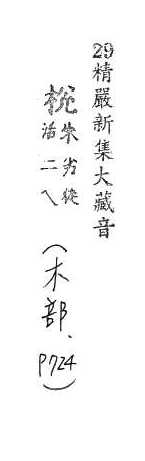 29精嚴新集大藏音
梲朱劣縱
活二乀
(木部、
P724)